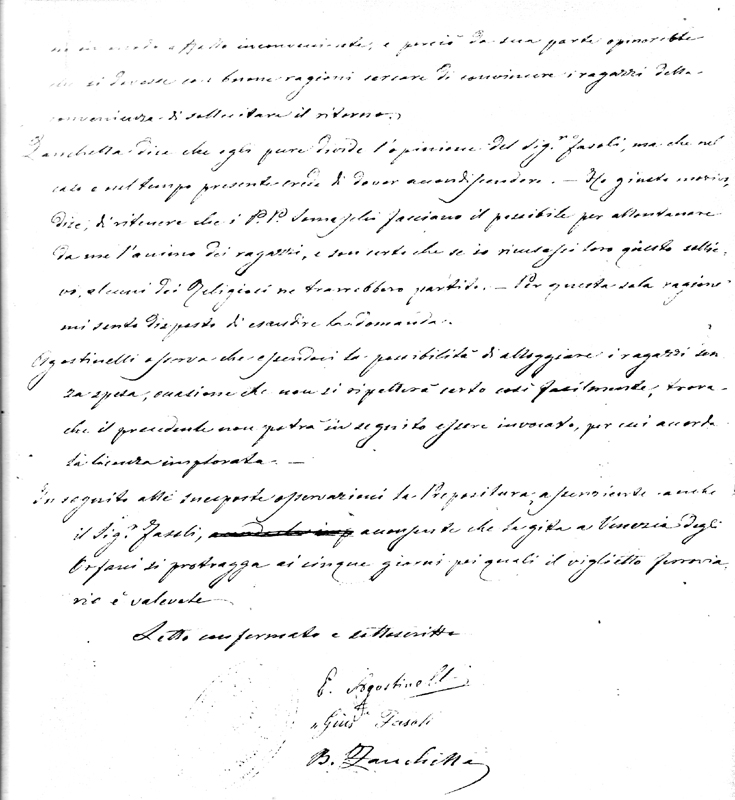 inconveniente, e perciò da sua parte opinerebbe
che si dovesse con buone ragioni cercare di convincere i ragazzi della
convenienza di sollecitare il ritorno.
Zanchetta dice che egli pure divide l'opinione del Sig.r Fasoli, ma che nel
caso e nel tempo presente crede di dover accondiscendere. — Ho giusto motivo,
dice, di ritenere che i P.P. Somaschi facciano il possibile per allontanare
da me l'animo dei ragazzi, e son certo che se io ricusassi loro questo sollie-
vo, alcuni dei Religiosi ne trarrebbero partito. — Per questa sola ragione
mi sento disposto di esaudire la domanda.
Agostinelli osserva che essendoci la possibilità di alloggiare i ragazzi sen-
za spesa, occasione che non si ripeterà certo così facilmente, trova
che il precedente non potrà in seguito essere invocato, per cui accorda
la licenza implorata. —
In seguito alle suesposte osservazioni la Prepositura, assenziente anche
il Sig.r Fasoli, acconsente che la gita a Venezia degli
Orfani si protragga ai cinque giorni pei quali il viglietto ferrovia-
rio è valevole
Letto confermato e sottoscritto
E. Agostinelli
Gius Fasoli
B. Zanchetta